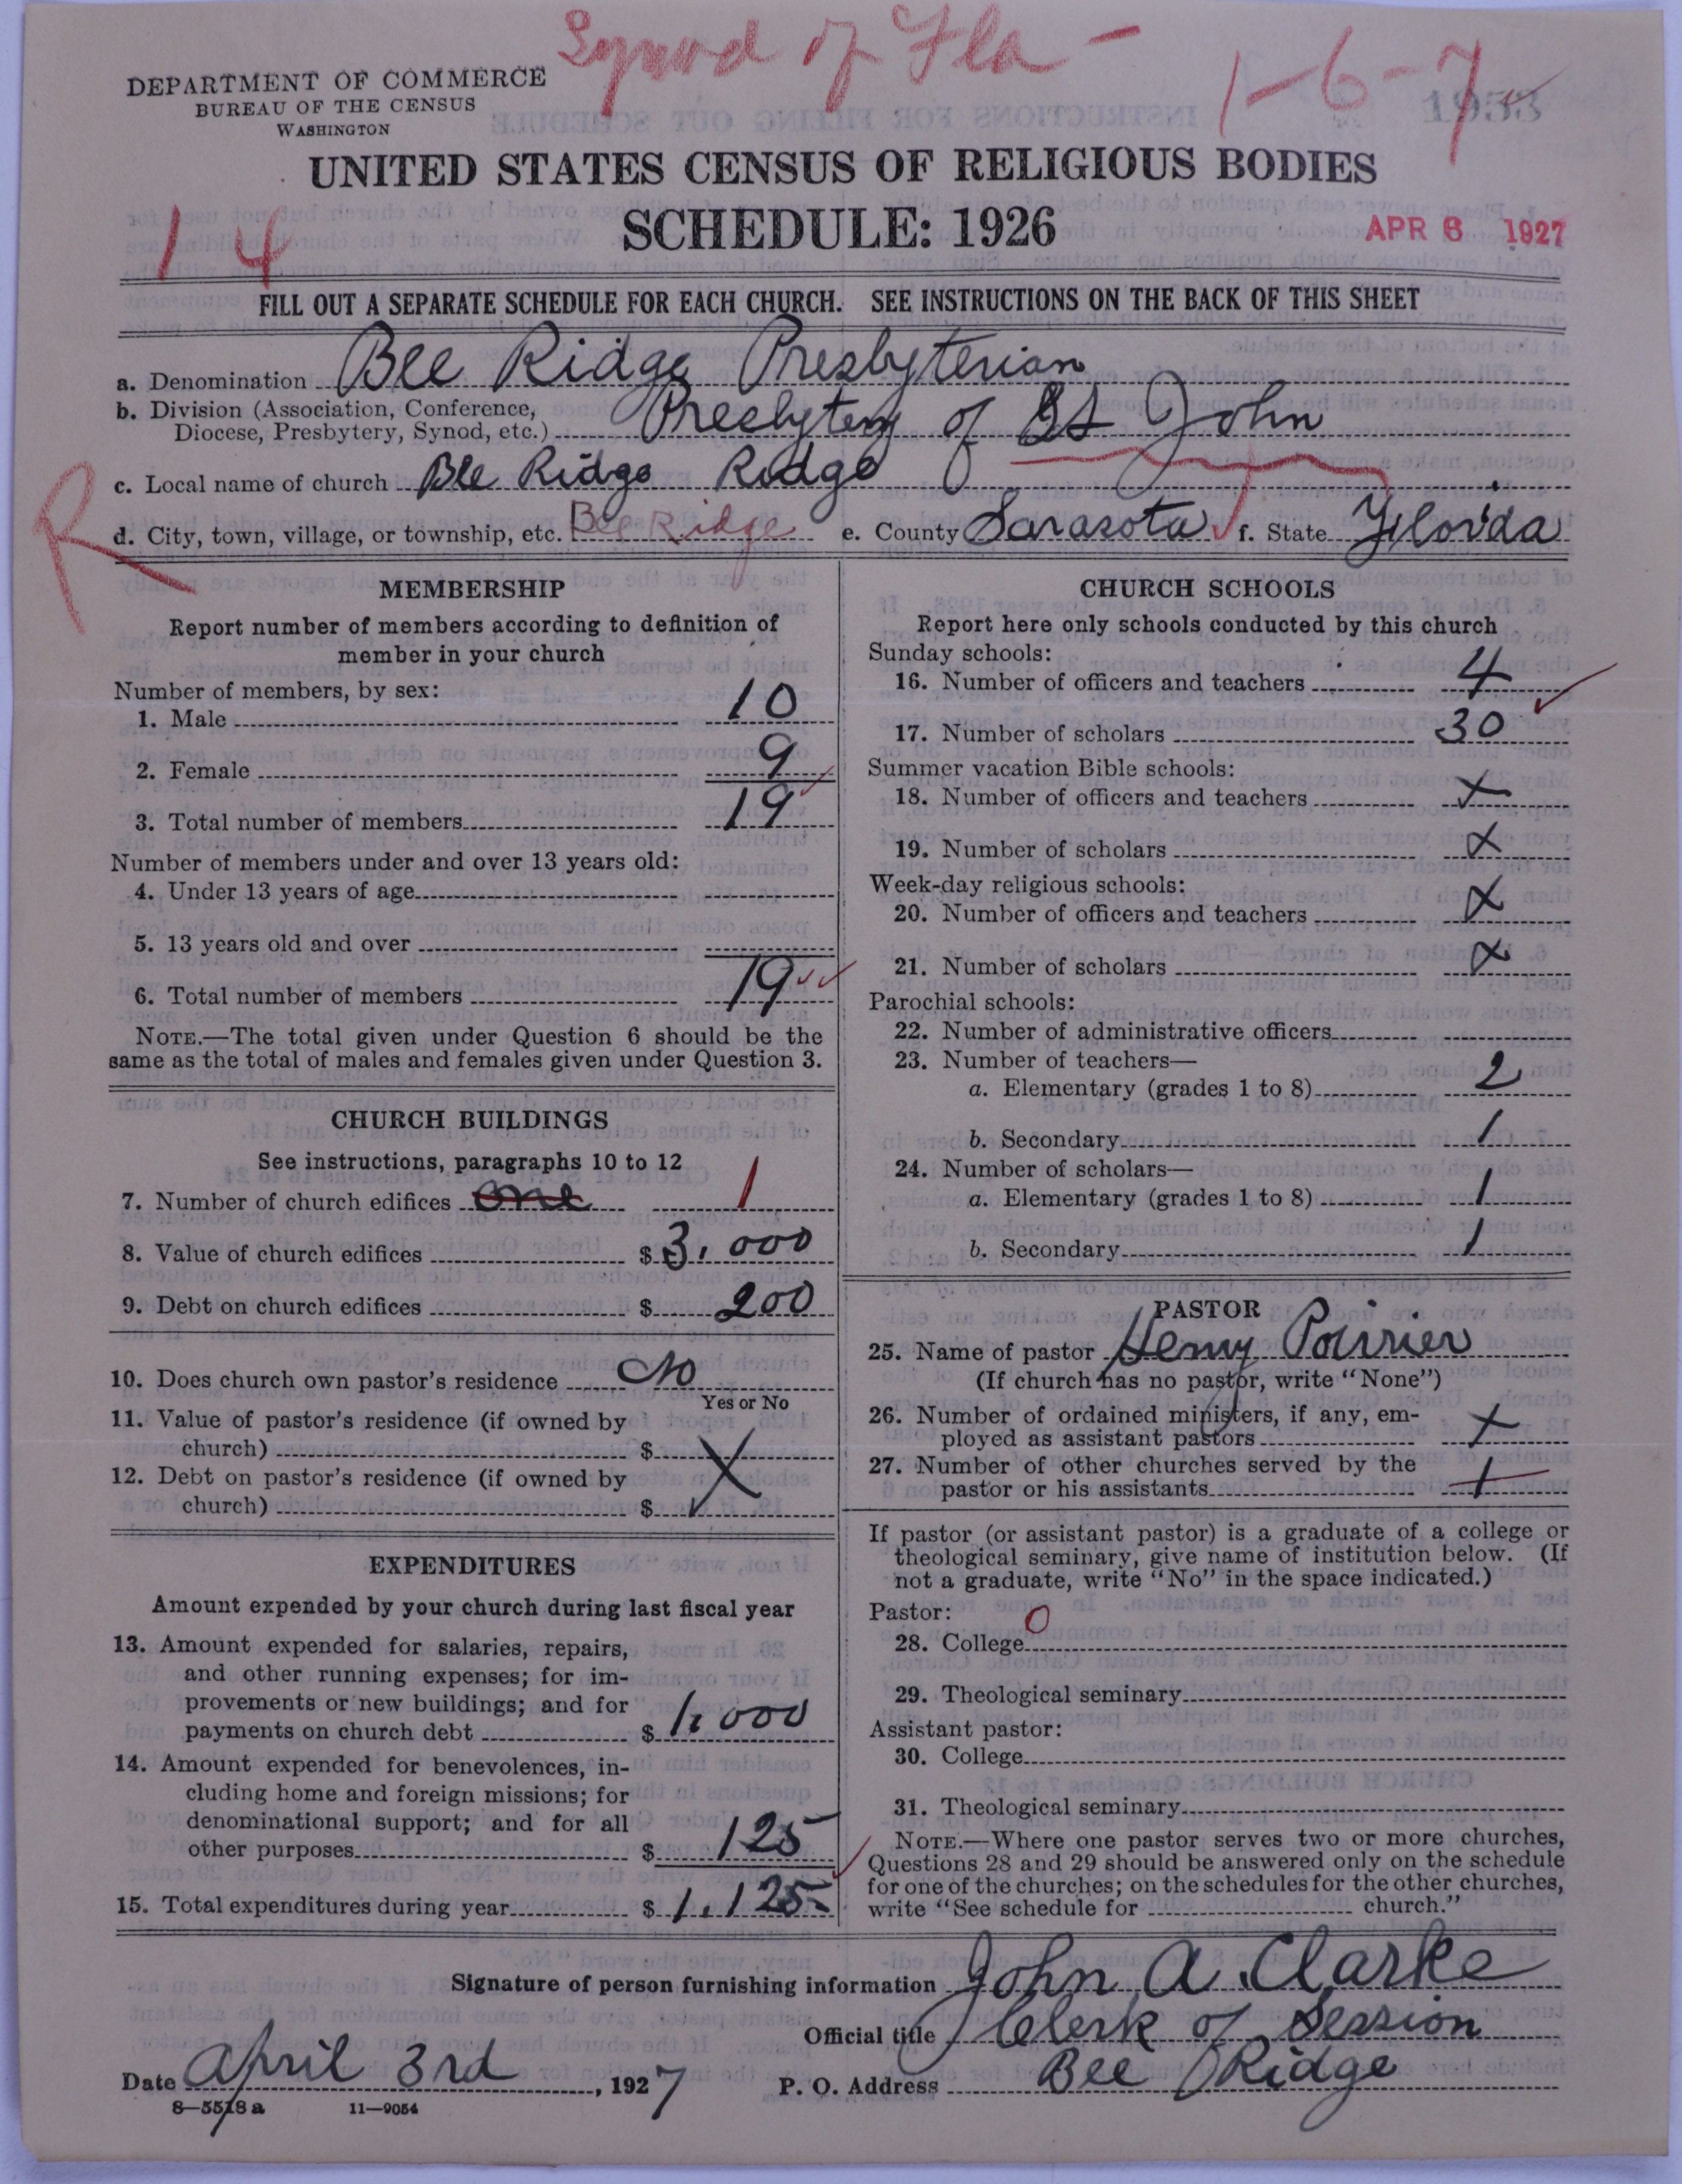 Synod of Fla -
1-6-7
DEPARTMENT OF COMMERCE
BUREAU OF THE CENSUS
WASHINGTON
UNITED STATES CENSUS OF RELIGIOUS BODIES
14
SCHEDULE: 1926
APR 6 1927
FILL OUT A SEPARATE SCHEDULE FOR EACH CHURCH. SEE INSTRUCTIONS ON THE BACK OF THIS SHEET
a. Denomination Bee Ridge Presbyterian
b. Division (Association, Conference,
Diocese, Presbytery, Synod, etc.) Presbytery of St John
c. Local name of church Bee Ridge Ridge
R
d. City, town, village, or township, etc. Bee Ridge e. County Sarasota f. State Florida
MEMBERSHIP
Report number of members according to definition of
member in your church
Number of members, by sex:
1. Male 10
2. Female 9
3. Total number of members 19
Number of members under and over 13 years old:
4. Under 13 years of age
5. 13 years old and over
6. Total number of members 19
NOTE.—The total given under Question 6 should be the
same as the total of males and females given under Question 3.
CHURCH BUILDINGS
See instructions, paragraphs 10 to 12
7. Number of church edifices one 1
8. Value of church edifices $ 3,000
9. Debt on church edifices $ 200
10. Does church own pastor's residence No
Yes or No
11. Value of pastor's residence (if owned by
church) $ X
12. Debt on pastor's residence (if owned by
church) $
EXPENDITURES
Amount expended by your church during last fiscal year
13. Amount expended for salaries, repairs,
and other running expenses; for im-
provements or new buildings; and for
payments on church debt $ 1,000
14. Amount expended for benevolences, in-
cluding home and foreign missions; for
denominational support; and for all
other purposes $ 125
15. Total expenditures during year $ 1,125
CHURCH SCHOOLS
Report here only schools conducted by this church
Sunday schools:
16. Number of officers and teachers 4
17. Number of scholars 30
Summer vacation Bible schools:
18. Number of officers and teachers X
19. Number of scholars X
Week-day religious schools:
20. Number of officers and teachers X
21. Number of scholars X
Parochial schools:
22. Number of administrative officers
23. Number of teachers—
a. Elementary (grades 1 to 8) 2
b. Secondary 1
24. Number of scholars—
a. Elementary (grades 1 to 8) 1
b. Secondary 1
PASTOR
25. Name of pastor Henry Poirrier
(If church has no pastor, write "None")
26. Number of ordained ministers, if any, em-
ployed as assistant pastors X
27. Number of other churches served by the
pastor or his assistants 1
If pastor (or assistant pastor) is a graduate of a college or
theological seminary, give name of institution below. (If
not a graduate, write "No" in the space indicated.)
Pastor:
28. College O
29. Theological seminary
Assistant pastor:
30. College
31. Theological seminary
NOTE.—Where one pastor serves two or more churches,
Questions 28 and 29 should be answered only on the schedule
for one of the churches; on the schedules for the other churches,
write "See schedule for church."
Signature of person furnishing information John A. Clarke
Official title Clerk of Session
Date April 3rd, 1927 P. O. Address Bee Ridge
8—5518 a 11—9054